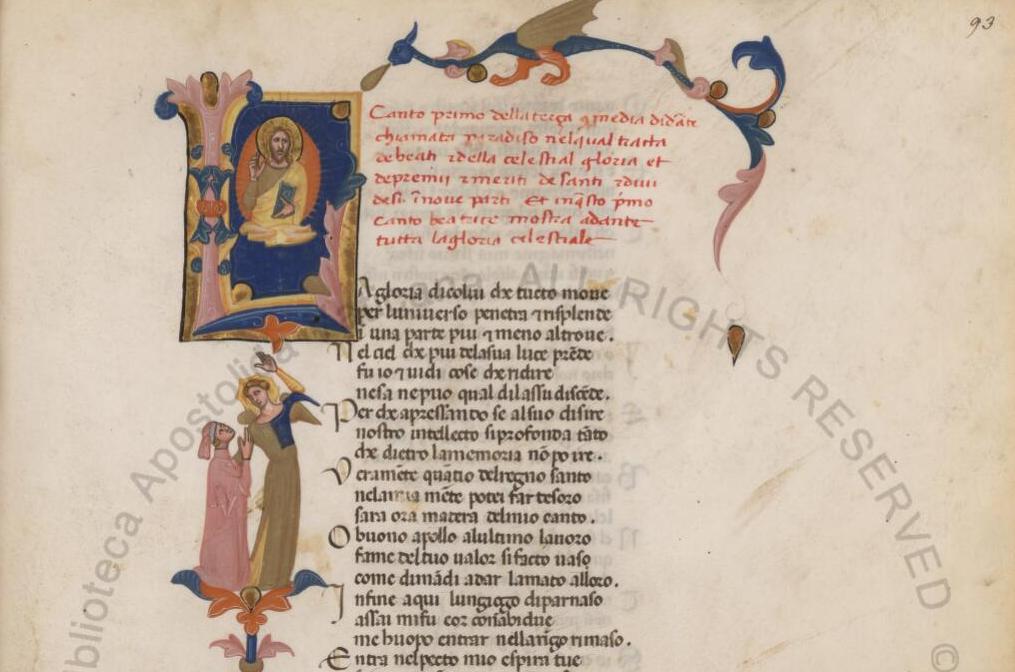 93
Canto primo della terça 9media di dãte
chiamata paradiso nel qual tratta
de beati ⁊ della celestial gloria et
de premii ⁊ meriti de santi ⁊ diui
desi ĩ noue parti Et in q̃sto p̃mo
canto beatrice mostra a dante
tutta la gloria celestiale
LA gloria di colui che tucto moue
per luniuerso penetra ⁊ risplende
ĩ una parte piu ⁊ meno altroue.
Nel ciel che piu dela sua luce prẽde
fu io ⁊ uidi cose che ridire
ne sa ne puo qual di lassu discẽde.
Per che apressando se al suo disire
nostro intellecto si profonda tãto
che dietro la memoria nõ po ire.
Veramẽte quãtio del regno santo
nela mia mẽte potei far tesoro
sara ora matera del mio canto.
O buono apollo alultimo lauoro
fame del tuo ualor si facto uaso
come dimãdi a dar lamato alloro.
Infine a qui lun giogo di parnaso
assai mi fu cor
me huopo entrar nellarĩgo rimaso.
Entra nel pecto mio espira tue
Biblioteca Apostolica ALL RIGHTS RESERVED ©